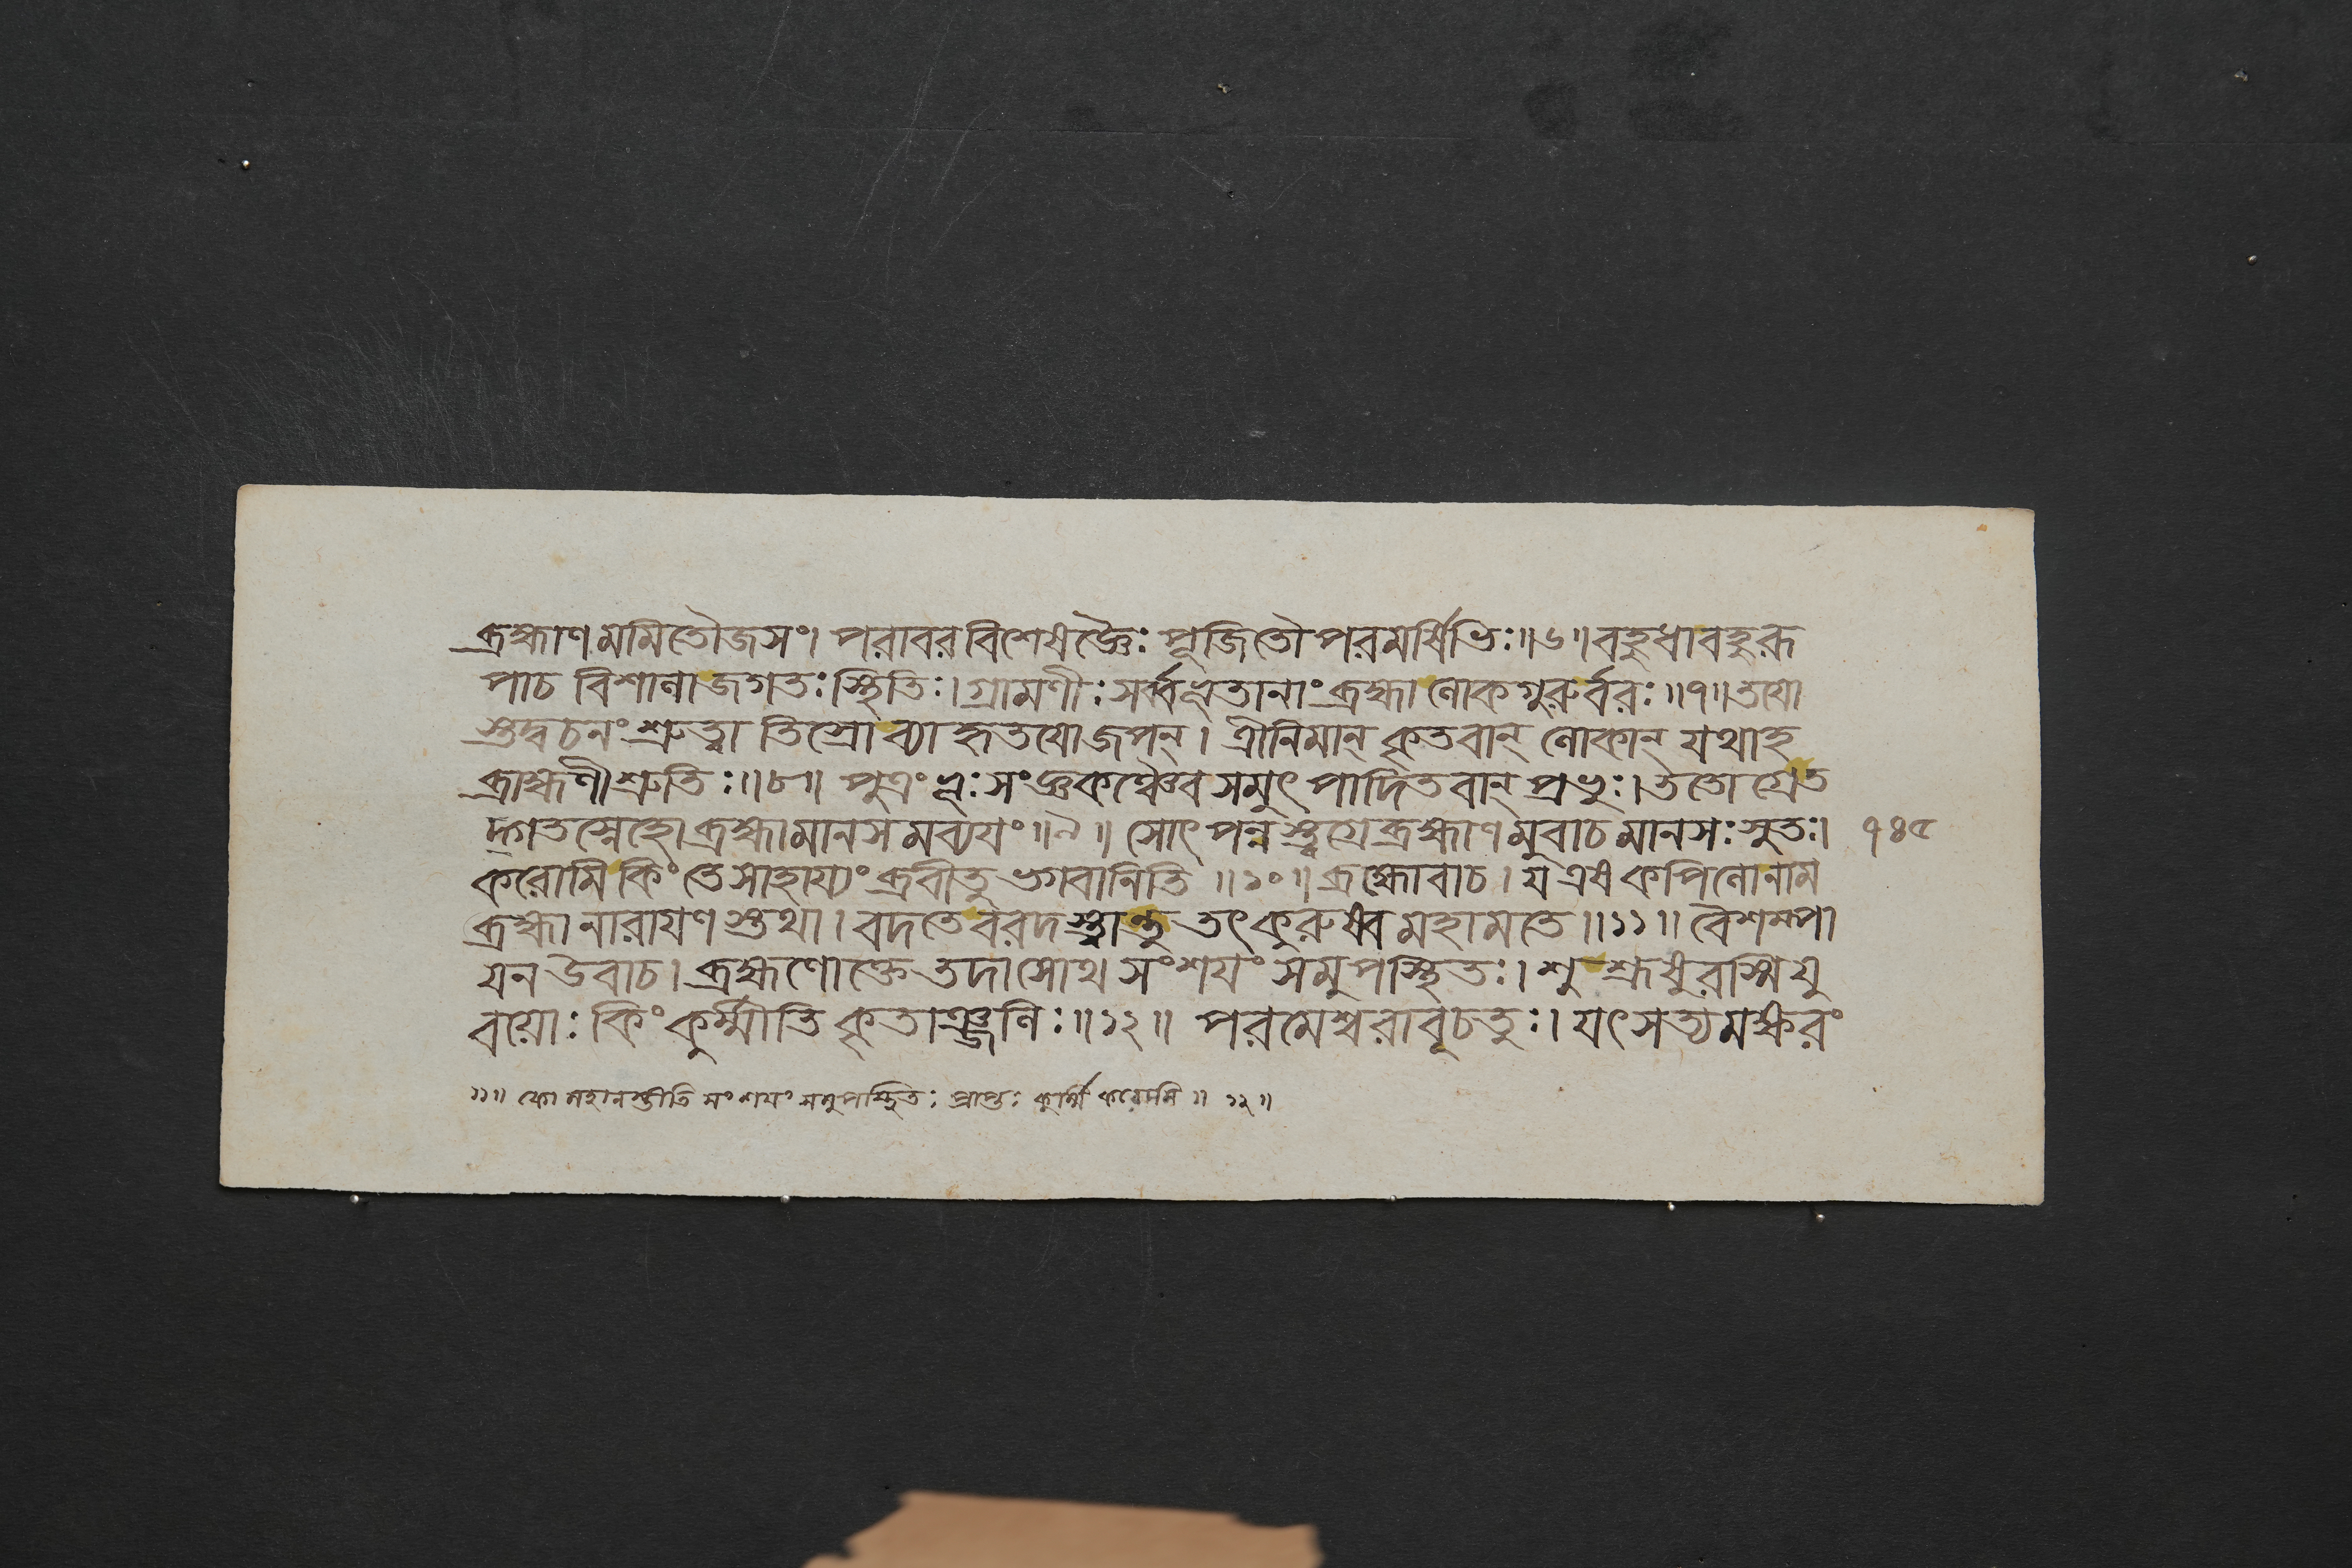 ব্রহ্মাণমমিতৌজসং। পরাবরবিশেষজ্ঞৈঃ পূজিতৌ পরমর্ষিভিঃ॥৬॥ বহুধাবহুরূ
পাচ বিশালাজগতঃ স্থিতিঃ। গ্রামণীঃ সর্ব্বভূতানাং ব্রহ্মালোকগুরুর্বরঃ॥৭॥ তয়ো
স্তদ্বচনং শ্রুত্বা তিস্রো ব্যাহৃতয়োজপন্। ত্রীনিমান্ কৃতবান্ লোকান্ যথাহ
ব্রাহ্মণীশ্রুতিঃ॥৮॥ পুত্রং ভূঃসংজ্ঞকঞ্চৈব সমুৎপাদিতবান্ প্রভুঃ। ততোগ্রেত
দ্গতস্নেহো ব্রহ্মামানসমব্যয়ং॥৯॥ সোৎপন্নস্ত্বগ্রেব্রহ্মাণমুবাচ মানসঃ সুতঃ। ৭৪৫
করোমি কিং তে সাহায্যং ব্রবীতু ভগবানিতি॥১০॥ ব্রহ্মোবাচ। য এষ কপিলোনাম
ব্রহ্মানারায়ণস্তথা। বদতেবরদস্ত্বান্তু তৎ কুরুষ্ব মহামতে॥১১॥ বৈশম্পা
য়ন উবাচ। ব্রহ্মণোক্তে তদাসোথ সংশয়ং সমুপস্থিতঃ। শুশ্রূষুরস্মি যু
বয়োঃ কিং কুর্ম্মীতি কৃতাঞ্জলিঃ॥১২॥ পরমেশ্বরাবূচতুঃ। যৎ সত্যমক্ষরং
১১॥ কো মহানস্তীতি সংশয়ং সমুপস্থিতঃ প্রাপ্তঃ কুর্ম্মি করোমি॥ ১২॥